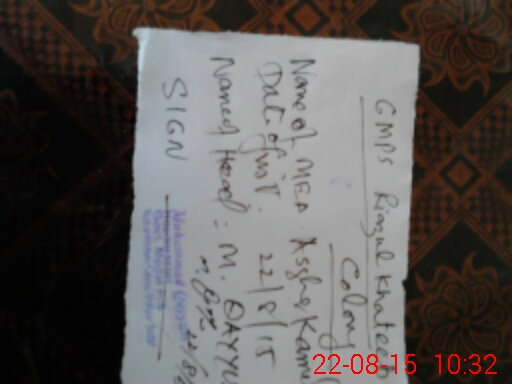 GMPS Riazul Khateeb
Colony
Name of MEA. Asghar Kamr
Date of visit. 22/8/15
Name of Head: M. QAYYU
SIGN
Muhammad Qayyum
22/8/
22-08-15 10:32